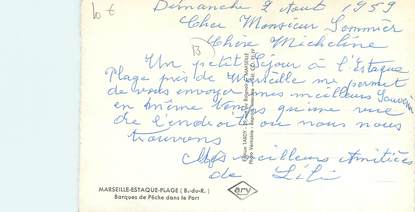 10 €
Dimanche 2 Aout 1959
Cher Monsieur Sommier
Chère Micheline
Un petit Séjour à l'Estaque
Plage près de Marseille me permet
de vous envoyer mes meilleurs Souvenirs
en même temps qu'une vue
de l'endroit où nous nous
trouvons
Mes meilleurs Amitiées
de Lili
MARSEILLE-ESTAQUE-PLAGE (B.-du-R.)
Barques de Pêche dans le Port
ary